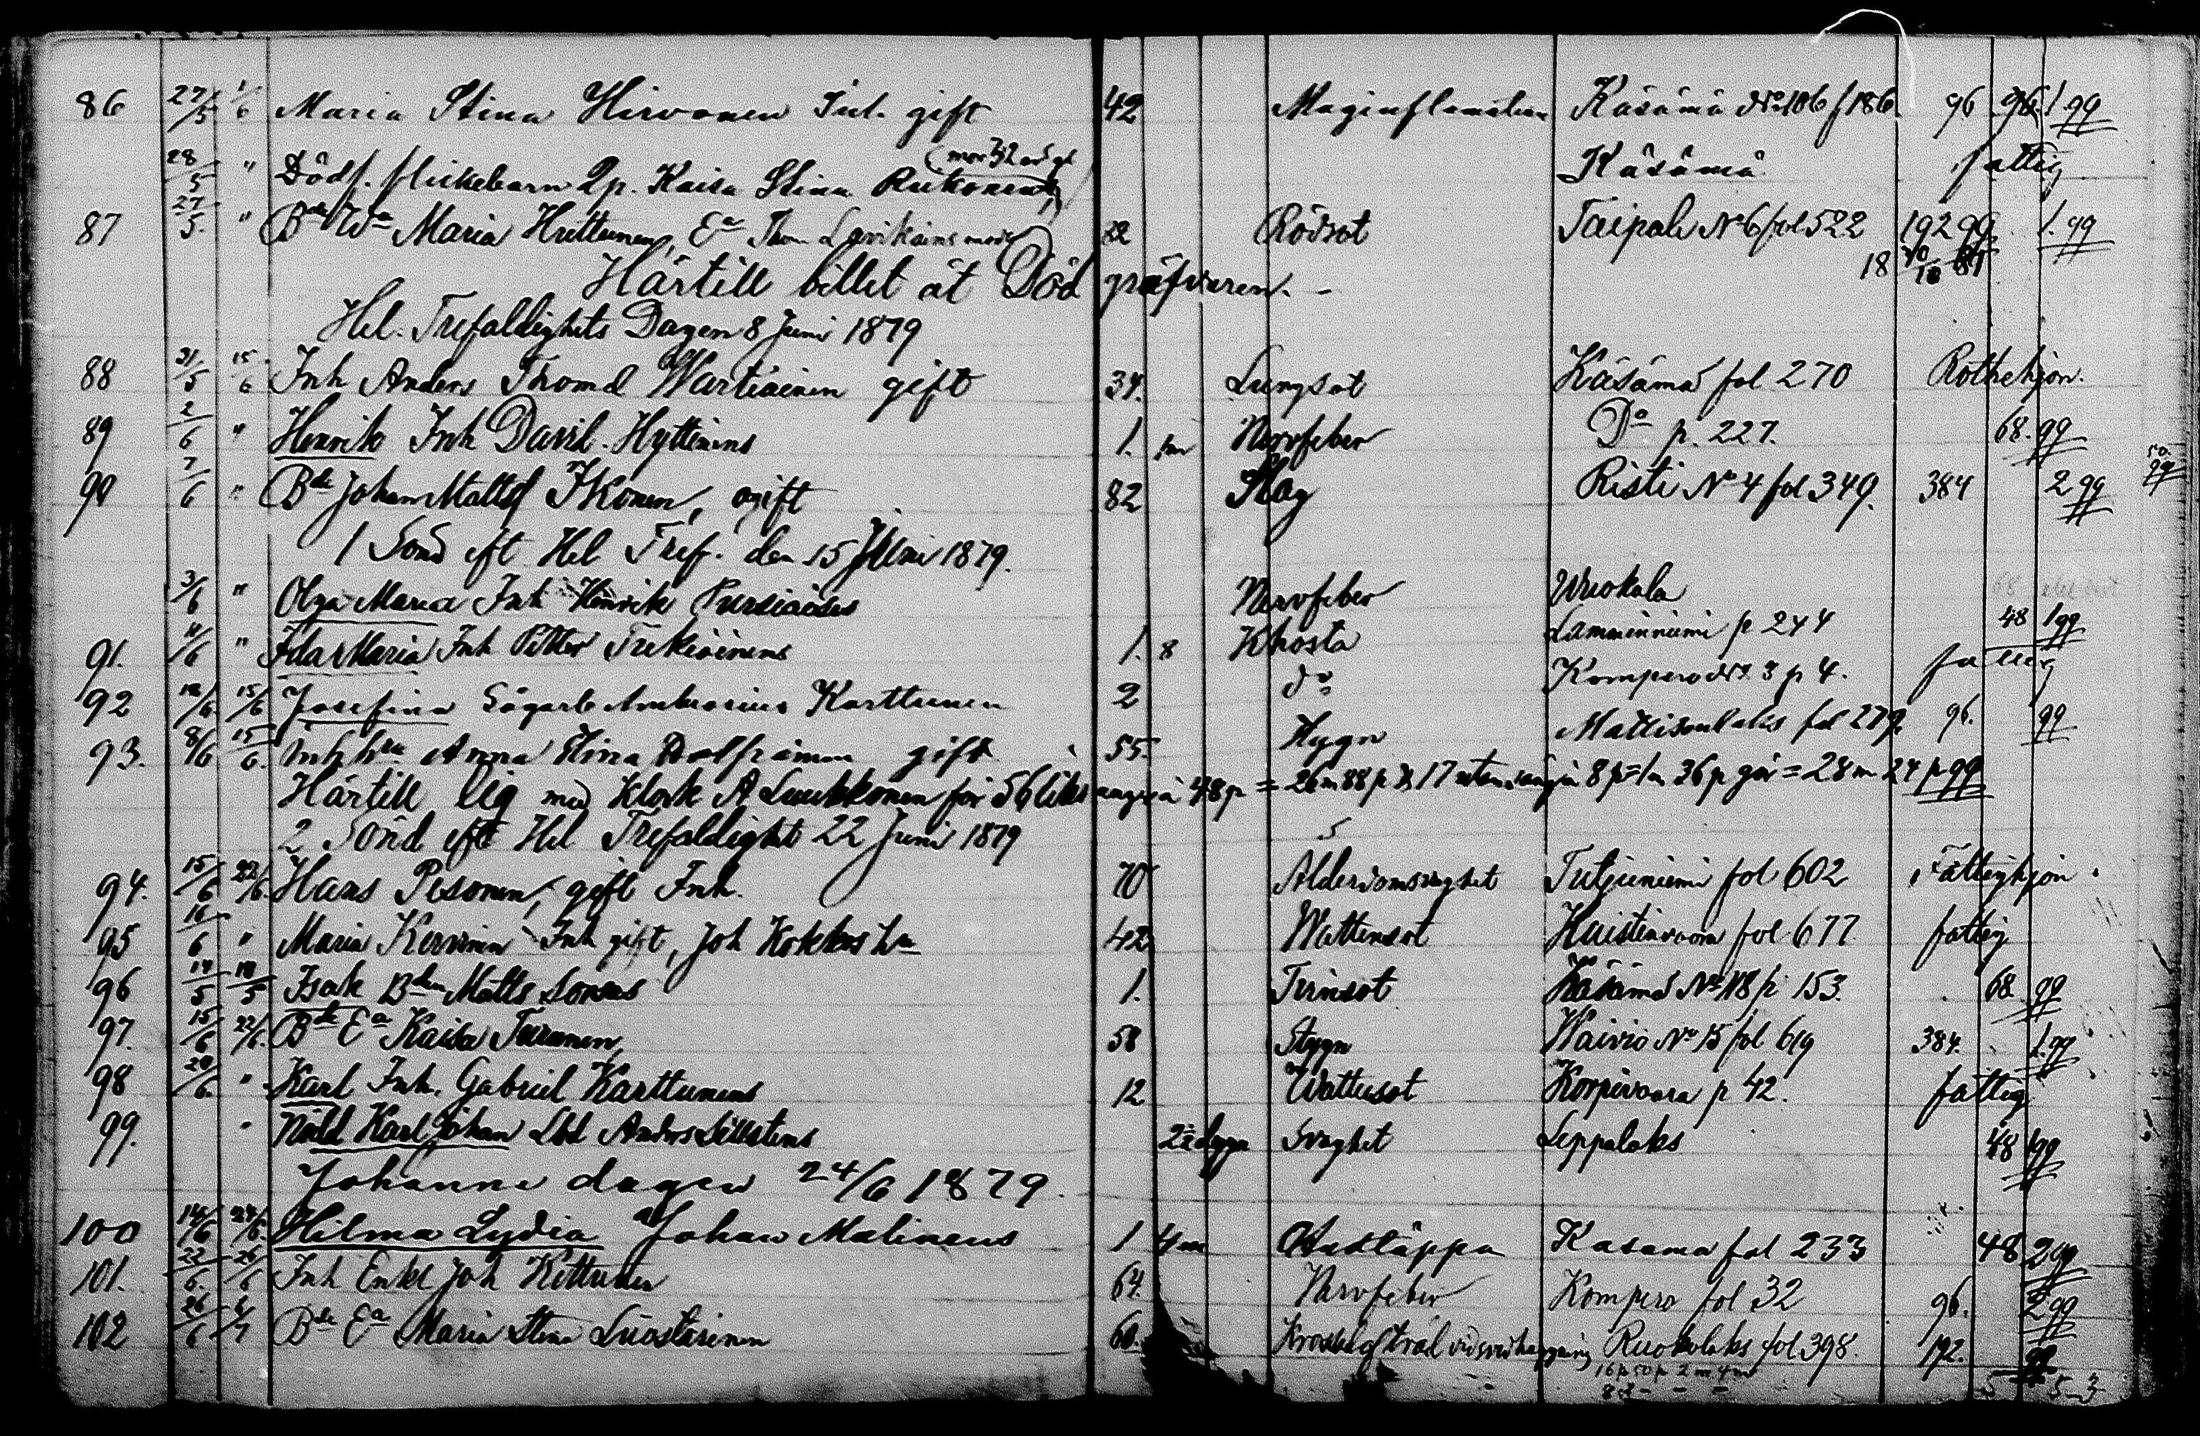 86 27/5 1/6 Maria Stina Hirvonen Inh. gift 42 Maginflamation Käsämä No 106 f 186. 96 96 1 99
28/5 " Dödf. flickebarn Op. Kaisa Stina (mor 32 år gl Käsämä fattig
87 27/5. " Bde Wa Maria Huttunen, Ea Thom Lavikains moder 22 Rödsot Taipale No 6 fol 522 192 99 1. 99
Härtill billet åt Död gräfvaren. - 18 10/10 81
Hel. Trefaldighets Dagen 8 Juni 1879
88 31/5 15/6 Inh Anders Thomd Wartiainen gift 34. Lungsot Käsämä fol 270 Rothehjon.
89 2/6 " Henrik Inh David Hyttinens 1. Nervfeber Do p. 227. 68. 99
90 7/6 " Bde Johan Mattsd Ikonen, ogift 82 Slag Risti No 4 fol 349. 384 2 99 50. 99
1 Sönd eft Hel Tref. den 15 Juni 1879.
3/6 " Olga Maria Inh Henrik Pursiaises Nervfeber Wuokala
91. 11/6 " Ida Maria Inh Petter Turkiainens 1. 8 Khosta Lamminniemi p 244 48 1 99
92 12/6. 15/6 Josefina Sågarb Ambrosius Karttunen 2 do Kompero No. 3 p 4. fattig
93. 8/6 15/6. Inh hu Anna Stina gift 55. Hygn Mattisenlaks fol 279. 96. 99
Härtill liq med Klock A Luukkonen för 56 liksånger à 48 p = 26 m 88 p & 17 utan sång à 8 p = 1 m 36 p gör = 28 m 24 p 99
2 Sönd eft Hel Trefaldight 22 Juni 1879
94. 15/6 22/6. Hans Pesonen, gift Inh. 70 Ålderdomsvaghet Tutjuniemi fol 602 Fattighjon.
95 16/6 " Maria Kervinen Inh gift, Joh Kokkos hu 42 Wattensot Huistinvaara fol 677 fattig
96 14/5 18/5 Isak Bden Matts Sonens 1. Tvinsot Käsämä No 18 p 153. 68 99
97. 15/6 22/6. Bde Ea Kaisa Turunen, 58 Stygn Waivio No 15 fol 619 384. 1. 99
98 20/6. " Karl Inh. Gabriel Karttunens 12 Wattusot Korpivaara p 42. fattig
99. " Nöld Karl Johan Lbd Anders Sillstens 2 dygn Svaghet Leppälaks 48 99
Johanne dagen 24/6 1879.
100 14/6 24/6. Hilma Lydia Johan Malinens 1 4 m Andtäppa Kasama fol 233 48 2 99
101. 22/6. 26/6 Inh Enkl Joh Kettunen 64. Nervfeber Kompero fol 32 96. 2 99
102 26/6 6/7 Bde Ea Maria Stina Suostarinen 60. Ruokolaks fol 398. 192. 99
16 p 50 p 2 m 4 m 5 5-3